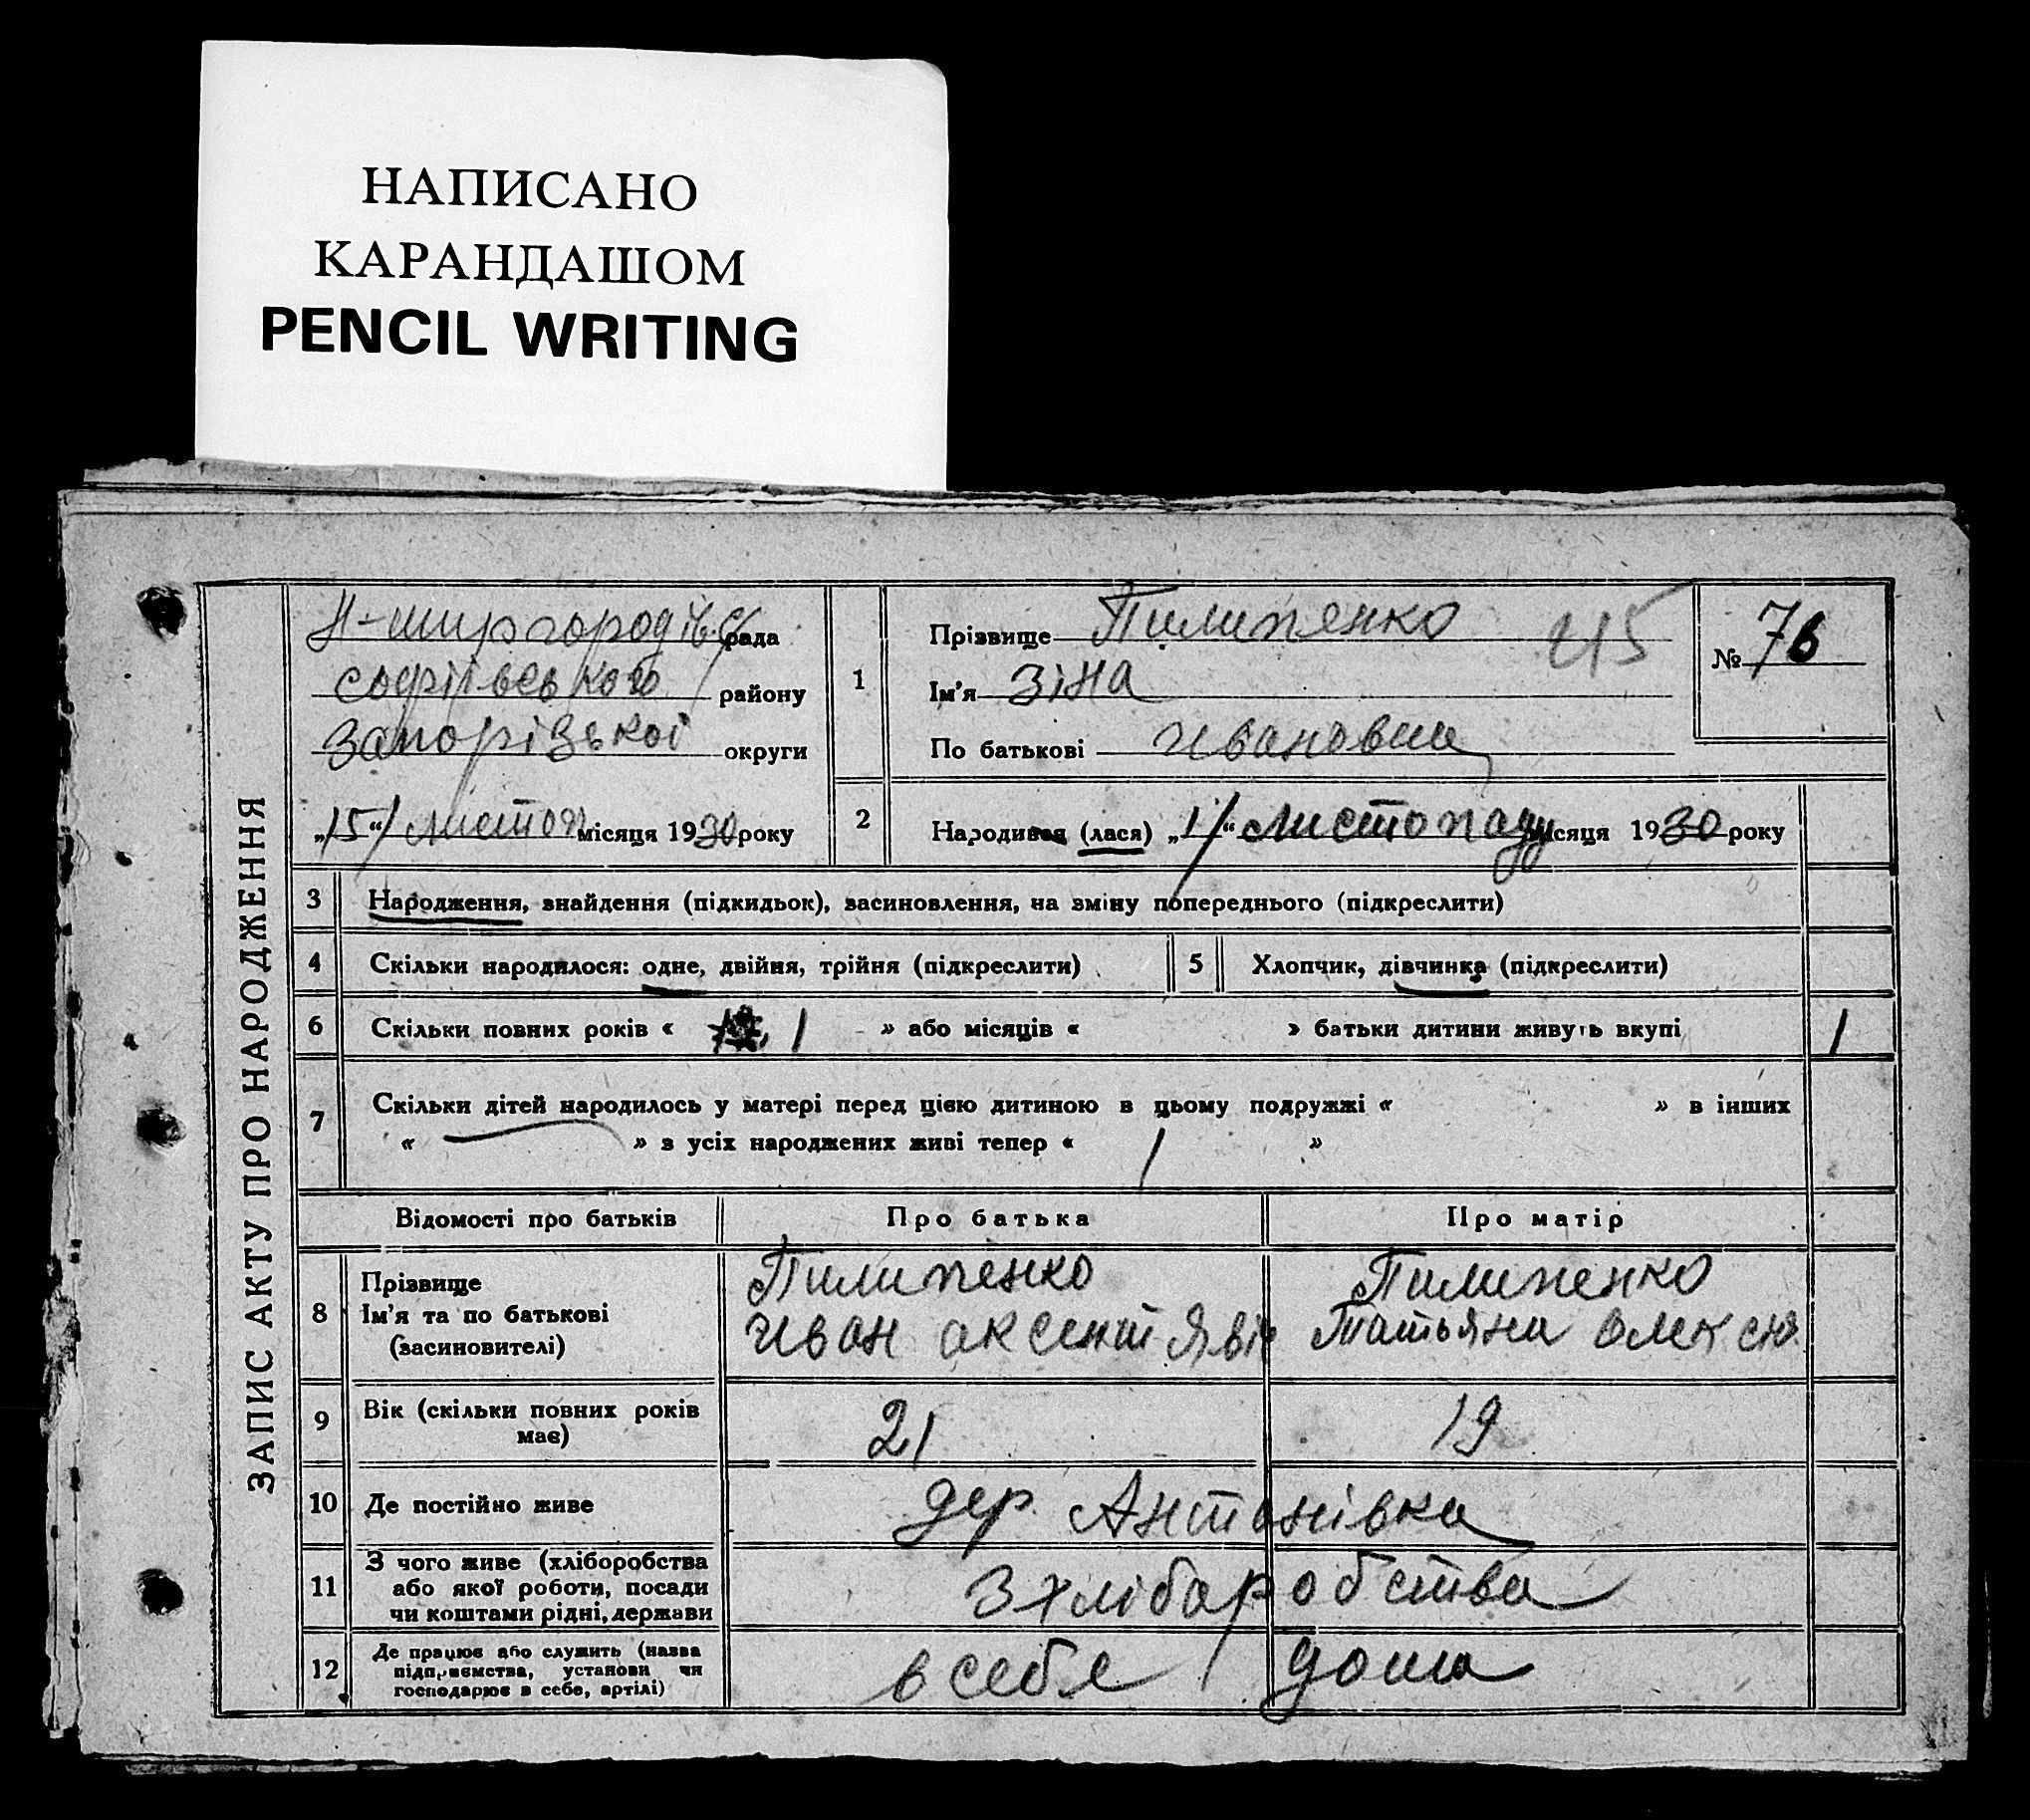 НАПИСАНО
КАРАНДАШОМ
PENCIL WRITING
ЗАПИС АКТУ ПРО НАРОДЖЕННЯ
Н-миргородівс рада
софіївського району
Запорізької округи
„15“ листоп місяця 1930 року
1
Прізвище Пилипенко
Ім'я Зіна
По батькові Ивановна
№ 76
2
Народився (лася) „1“ листопаду місяця 1930 року
3 Народження, знайдення (підкидьок), засиновлення, на зміну попереднього (підкреслити)
4 Скільки народилося: одне, двійня, трійня (підкреслити)
5 Хлопчик, дівчинка (підкреслити)
6 Скільки повних років « 1 » або місяців « » батьки дитини живуть вкупі 1
7 Скільки дітей народилось у матері перед цією дитиною в цьому подружжі « » в інших
« — » з усіх народжених живі тепер « 1 »
Відомості про батьків Про батька Про матір
8
Прізвище Пилипенко Пилипенко
Ім'я та по батькові Иван аксентявіч Татьяна олексю
(засиновителі)
9 Вік (скільки повних років має) 21 19
10 Де постійно живе дер. Антонівка
11 З чого живе (хліборобства
або якої роботи, посади
чи коштами рідні, держави
З хліборобства
12 Де працює або служить (назва
підприємства, установи чи
господарює в себе, артілі)
в себе дома